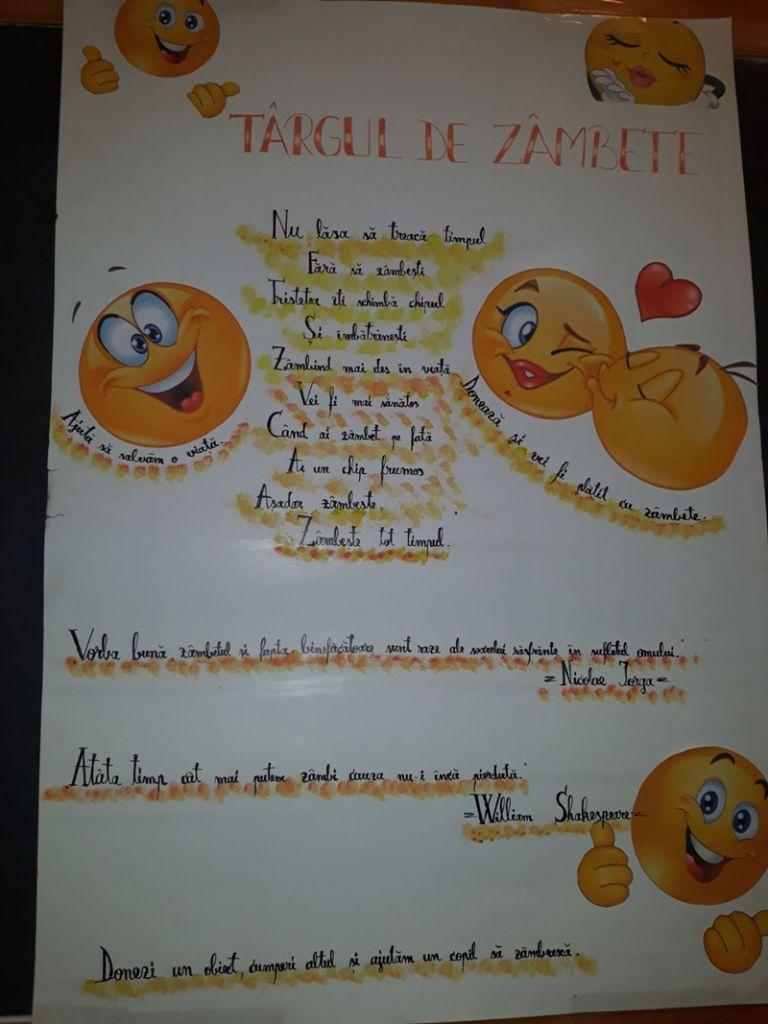 TÂRGUL DE ZÂMBETE
Nu lăsa să treacă timpul
Fără să zâmbești
Tristețea îți schimbă chipul
Și îmbătrânești
Zâmbind mai des în viață
Vei fi mai sănătos
Când ai zâmbet pe față
Ai un chip frumos
Așadar zâmbește,
Zâmbește tot timpul.
Ajută să salvăm o viață.
Donează și vei fi plătit cu zâmbete.
Vorba bună, zâmbetul și fapta binefăcătoare sunt raze ale soarelui răsfrânte în sufletul omului."
= Nicolae Iorga =
Atâta timp cât mai putem zâmbi cauza nu-i încă pierdută."
=William Shakespeare=
Donezi un obiect, cumperi altul și ajutăm un copil să zâmbească.